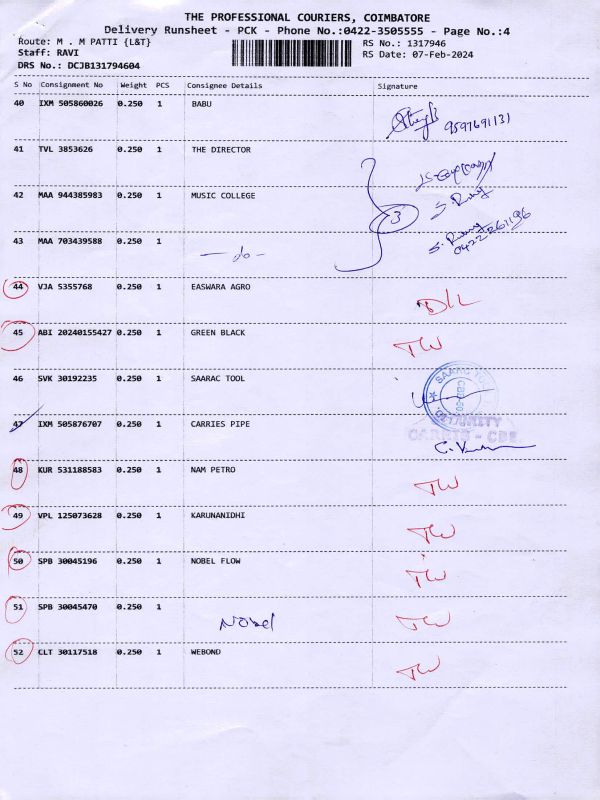 THE PROFESSIONAL COURIERS, COIMBATORE
Delivery Runsheet - PCK - Phone No.:0422-3505555 - Page No.:4
Route: M . M PATTI {L&T} RS No.: 1317946
Staff: RAVI RS Date: 07-Feb-2024
DRS No.: DCJB131794604
S No Consignment No Weight PCS Consignee Details Signature
40 IXM 505860026 0.250 1 BABU
9597691131
41 TVL 3853626 0.250 1 THE DIRECTOR
42 MAA 944385983 0.250 1 MUSIC COLLEGE
3
43 MAA 703439588 0.250 1
- do -
44 VJA 5355768 0.250 1 EASWARA AGRO
D/L
45 ABI 20240155427 0.250 1 GREEN BLACK
TW
46 SVK 30192235 0.250 1 SAARAC TOOL
47 IXM 505876707 0.250 1 CARRIES PIPE
SECURITY
48 KUR 531188583 0.250 1 NAM PETRO
TW
49 VPL 125073628 0.250 1 KARUNANIDHI
TW
50 SPB 30045196 0.250 1 NOBEL FLOW
TW
51 SPB 30045470 0.250 1
Nobel TW
52 CLT 30117518 0.250 1 WEBOND
TW